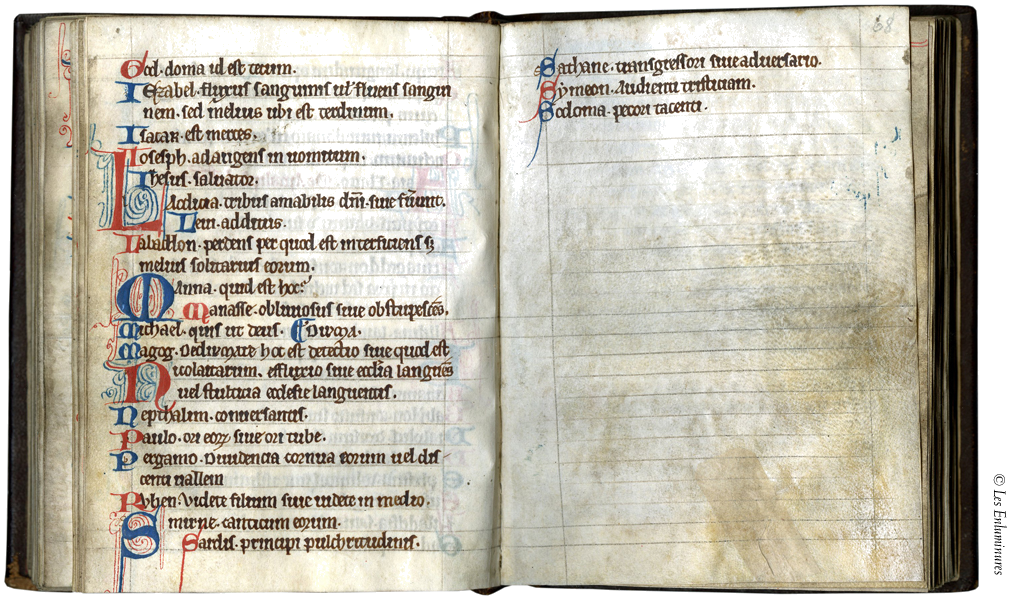 God. doma ul est tectum.
Iezabel. fluxus sanguinis ul' fluens sangui
nem. sed melius ubi est
Isacar. est merces.
Ioseph. in
Ihesus. saluator.
tribus amabilis dñi. siue
additus.
perdens per quod est interficiens
melius solitarius eorum.
Manna. quid est hoc?
Manasse. obliuiosus siue
Michael. quis ut deus.
Magog. hoc est detectio siue quod est
Nicolaitarum. effusio siue
uel stulticia ecclesie languentis.
Nepthalim. conuersantis.
Paulo. ori siue ori tube.
Pergamo. Diuidencia cornua eorum uel dis
centi uallem
Ruben. Videte filium siue uidete in medio.
Smirne. canticum eorum.
Sardis. principi pulchritudinis.
68
Sathane. transgressori siue aduersario.
Symeon. Audienti tristiciam.
Sodoma. pecori tacenti.
© Les Enluminures